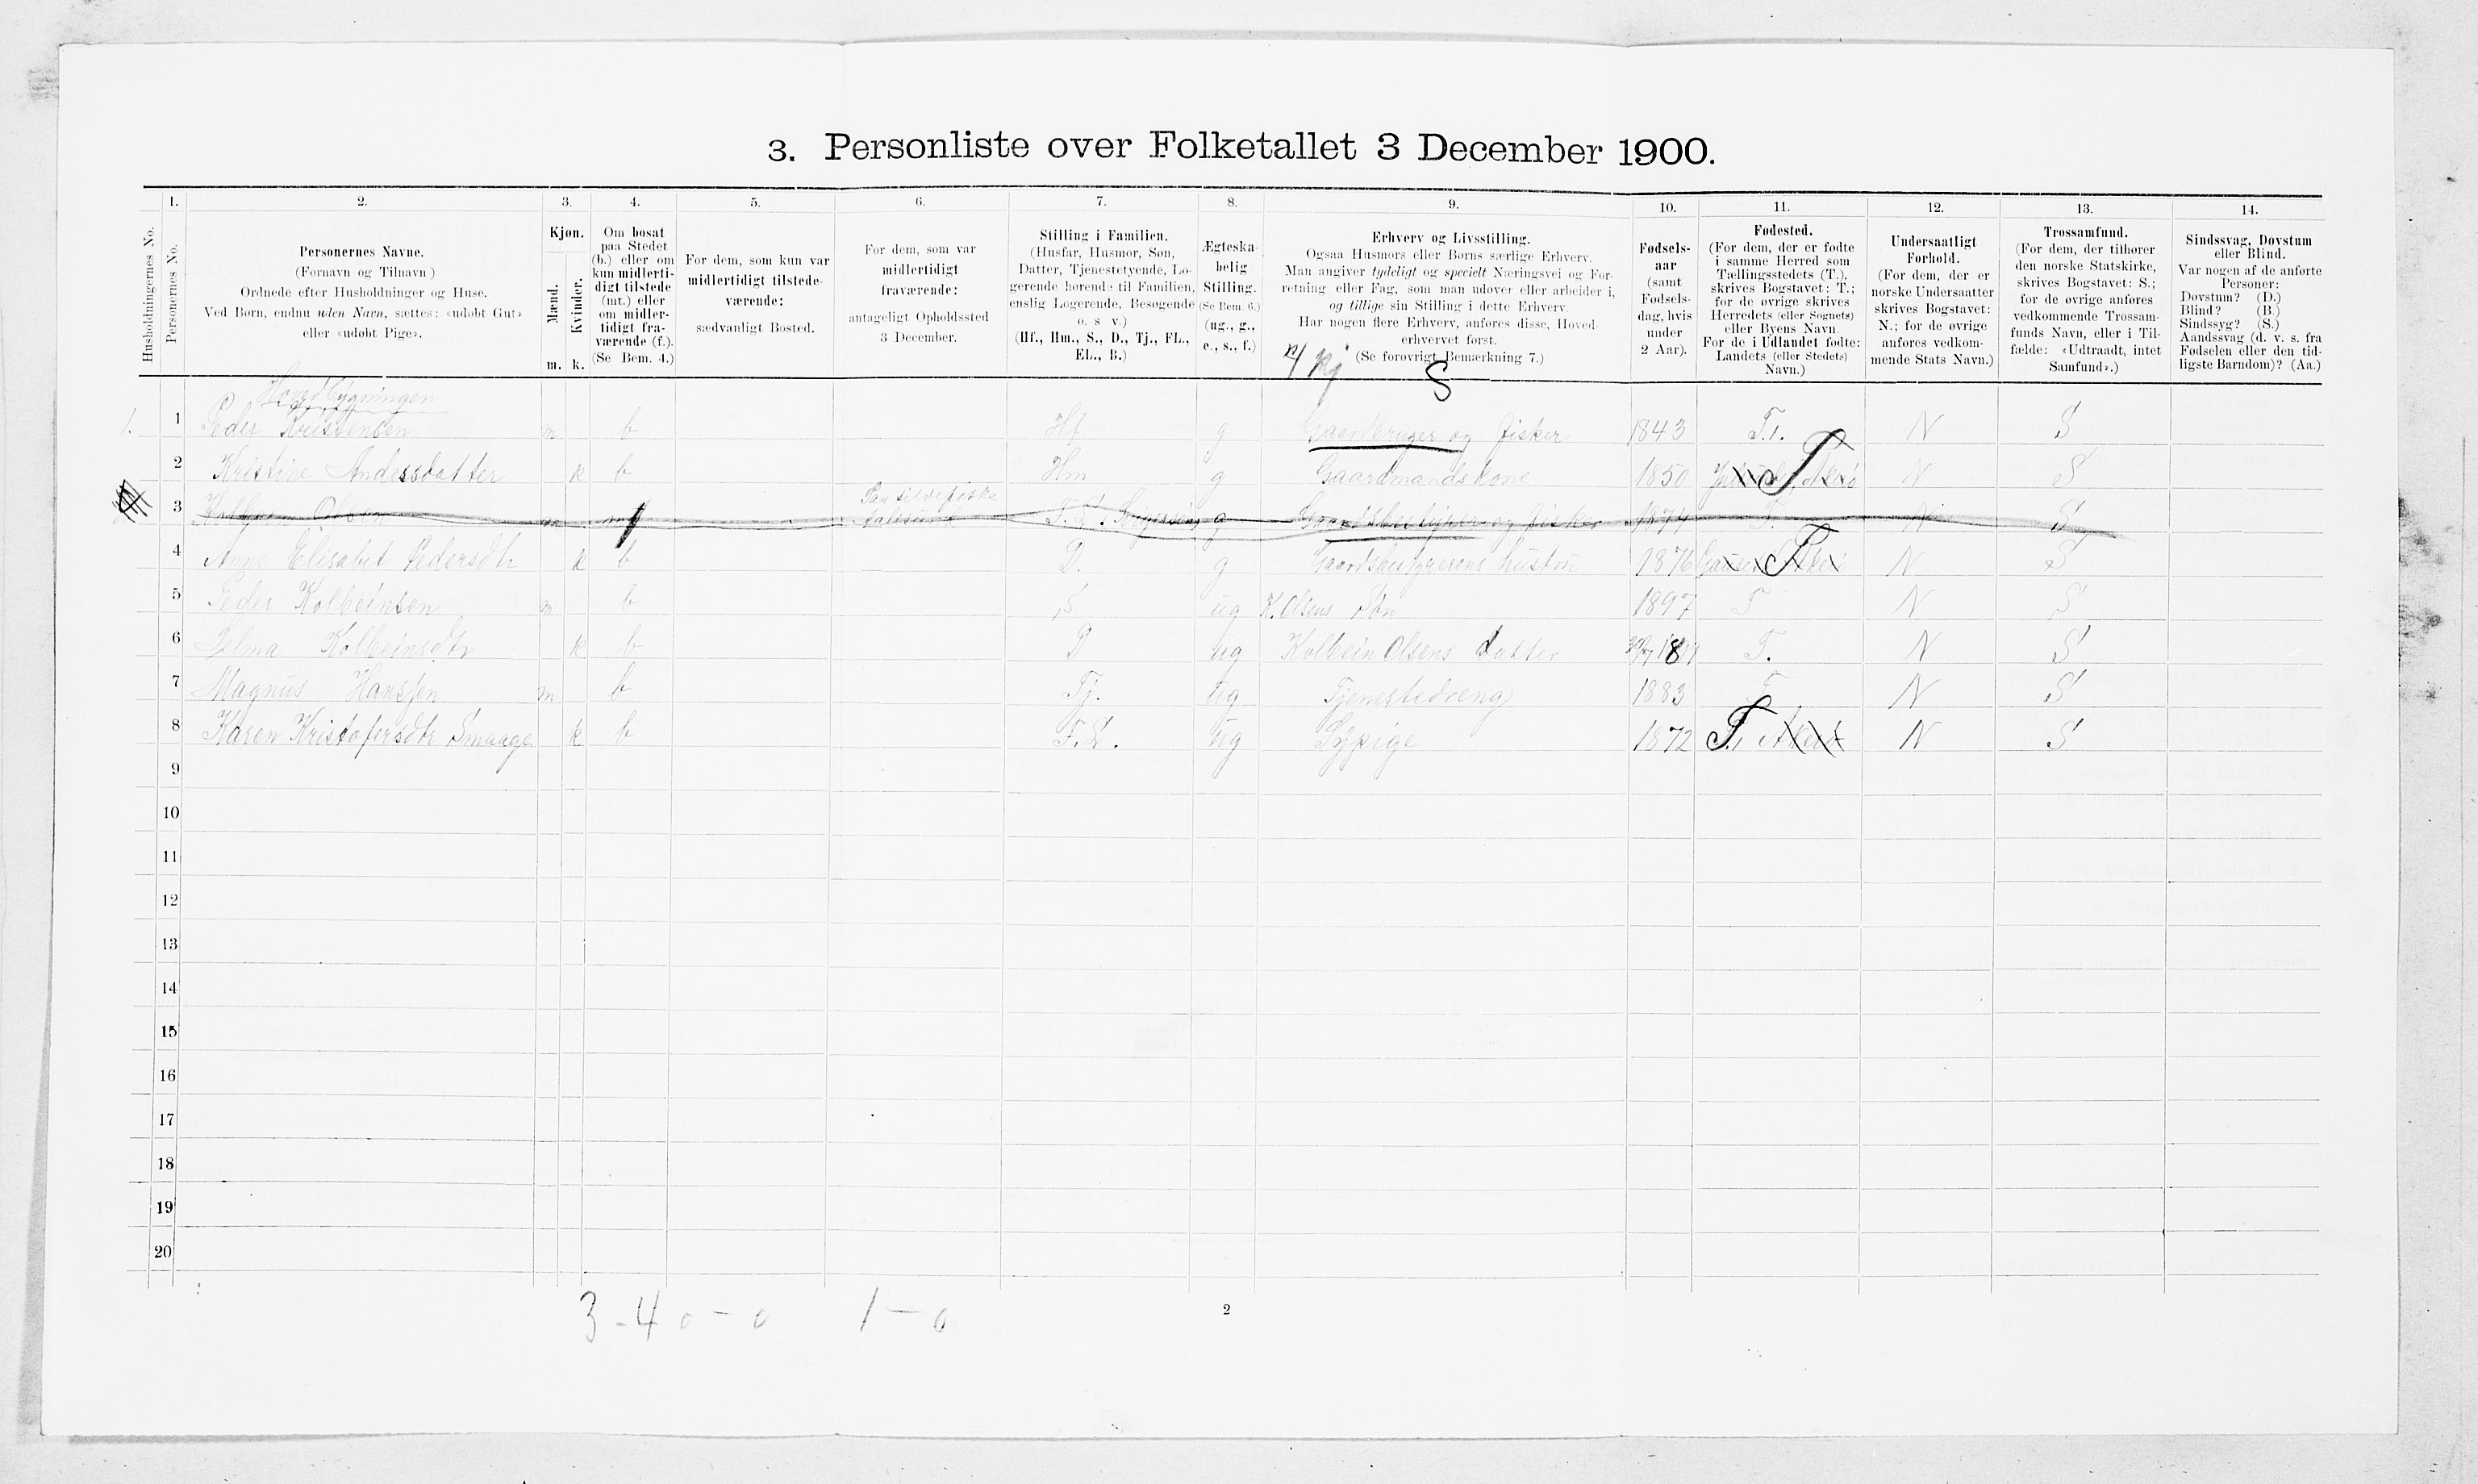 3. Personliste over Folketallet 3 December 1900.
1. 2. 3. 4. 5. 6. 7. 8. 9. 10. 11. 12. 13. 14.
Husholdningernes No.
Personernes No.
Personernes Navne.
(Fornavn og Tilnavn)
Ordnede efter Husholdninger og Huse.
Ved Børn, endnu uden Navn, sættes: «udøbt Gut»
eller «udøbt Pige».
Kjøn.
Mænd.
Kvinder.
m. k.
Om bosat
paa Stedet
(b.) eller om
kun midlerti-
digt tilstede
(mt.) eller
om midler-
tidigt fra-
værende (f.).
(Se Bem. 4.)
For dem, som kun var
midlertidigt tilstede-
værende:
sædvanligt Bosted.
For dem, som var
midlertidigt
fraværende:
antageligt Opholdssted
3 December.
Stilling i Familien.
(Husfar, Husmor, Søn,
Datter, Tjenestetyende, Lo-
gerende hørende til Familien,
enslig Logerende, Besøgende
o. s v.)
(Hf., Hm., S., D., Tj., FL.,
EL., B.)
Ægteska-
belig
Stilling.
(Se Bem. 6.)
(ug., g.,
e., s., f.)
Erhverv og Livsstilling.
Ogsaa Husmors eller Børns særlige Erhverv.
Man angiver tydeligt og specielt Næringsvei og For-
retning eller Fag, som man udøver eller arbeider i,
og tillige sin Stilling i dette Erhverv.
Har nogen flere Erhverv, anføres disse, Hoved-
erhvervet først.
(Se forøvrigt Bemærkning 7.)
S
Fødsels-
aar
(samt
Fødsels-
dag, hvis
under
2 Aar).
Fødested.
(For dem, der er fødte
i samme Herred som
Tællingsstedets (T.),
skrives Bogstavet: T.;
for de øvrige skrives
Herredets (eller Sognets)
eller Byens Navn.
For de i Udlandet fødte:
Landets (eller Stedets)
Navn.)
Undersaatligt
Forhold.
(For dem, der er
norske Undersaatter
skrives Bogstavet:
N.; for de øvrige
anføres vedkom-
mende Stats Navn.)
Trossamfund.
(For dem, der tilhører
den norske Statskirke,
skrives Bogstavet: S.;
for de øvrige anføres
vedkommende Trossam-
funds Navn, eller i Til-
fælde: «Udtraadt, intet
Samfund».)
Sindssvag, Døvstum
eller Blind.
Var nogen af de anførte
Personer:
Døvstum? (D.)
Blind? (B.)
Sindssyg? (S.)
Aandssvag (d. v. s. fra
Fødselen eller den tid-
ligste Barndom)? (Aa.)
Hovedbygningen
1. 1 Peder Kristensen m b Hf g Gaardbruger og fisker 1843 T. N S
2 Kristine Andersdatter k b Hm g Gaardmandskone 1850 T N S
3 Olsen m f g Gaardsbestyrer og fisker 1874 T. N S
4 Anne Elisabet Pedersdtr k b D. g Gaardsbestyrerens hustru 1876 T N S
5 Peder Kolbeinsen m b S ug K. Olsens Søn 1897 T N S
6 Selma Kolbeinsdtr k b D ug Kolbein Olsens datter T. N S
7 Magnus Hansen m b Tj. ug Tjenestedreng 1883 T N S
8 Karen Kristofersdtr Smaage k b F.L. ug Sypige 1872 T. N S
9
10
11
12
13
14
15
16
17
18
19
20
3 - 4 0 - 0 1 - 0
2